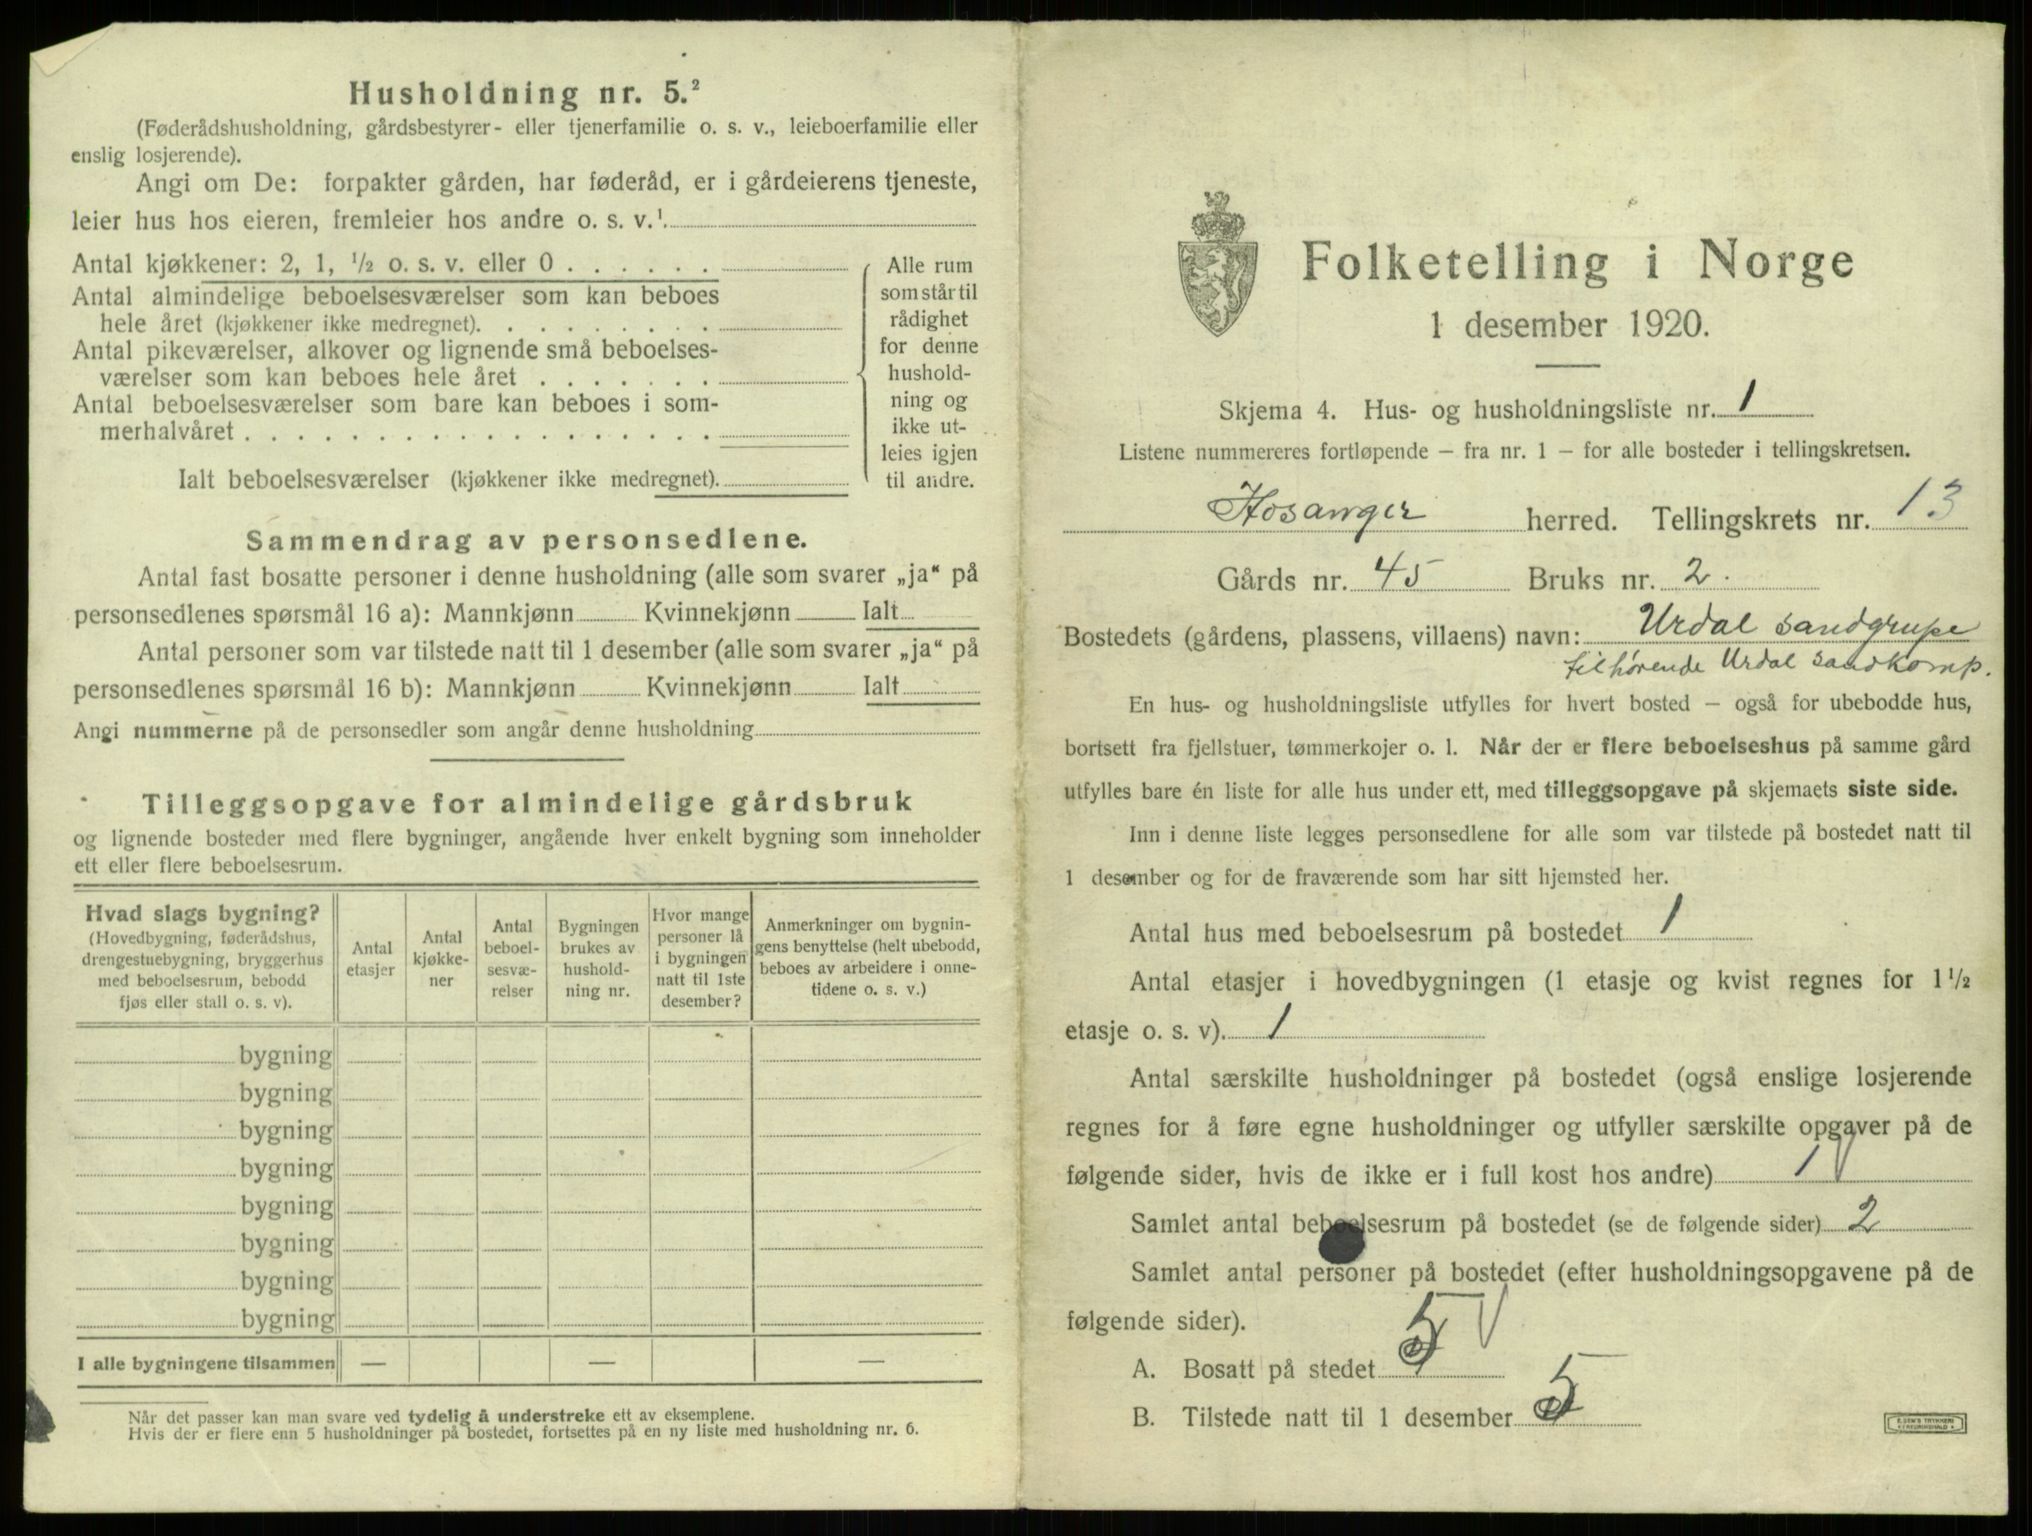 Husholdning nr. 5.²
(Føderådshusholdning, gårdsbestyrer- eller tjenerfamilie o. s. v., leieboerfamilie eller
enslig losjerende).
Angi om De: forpakter gården, har føderåd, er i gårdeierens tjeneste,
leier hus hos eieren, fremleier hos andre o. s. v.¹.
Antal kjøkkener: 2, 1, ½ o. s. v. eller 0 . . . . . .
Antal almindelige beboelsesværelser som kan beboes
hele året (kjøkkener ikke medregnet). . . . . . . . .
Antal pikeværelser, alkover og lignende små beboelses-
værelser som kan beboes hele året . . . . . . .
Antal beboelsesværelser som bare kan beboes i som-
merhalvåret . . . . . . . . . . . . . . . . . .
Ialt beboelsesværelser (kjøkkener ikke medregnet).
Alle rum
som står til
rådighet
for denne
hushold-
ning og
ikke ut-
leies igjen
til andre.
Sammendrag av personsedlene.
Antal fast bosatte personer i denne husholdning (alle som svarer „ja“ på
personsedlenes spørsmål 16 a): Mannkjønn Kvinnekjønn Ialt
Antal personer som var tilstede natt til 1 desember (alle som svarer „ja“ på
personsedlenes spørsmål 16 b): Mannkjønn Kvinnekjønn Ialt
Angi nummerne på de personsedler som angår denne husholdning
Tilleggsopgave for almindelige gårdsbruk
og lignende bosteder med flere bygninger, angående hver enkelt bygning som inneholder
ett eller flere beboelsesrum.
Hvad slags bygning?
(Hovedbygning, føderådshus,
drengestuebygning, bryggerhus
med beboelsesrum, bebodd
fjøs eller stall o. s. v).
Antal
etasjer
Antal
kjøkke-
ner
Antal
beboel-
sesvæ-
relser
Bygningen
brukes av
hushold-
ning nr.
Hvor mange
personer lå
i bygningen
natt til 1ste
desember?
Anmerkninger om bygnin-
gens benyttelse (helt ubebodd,
beboes av arbeidere i onne-
tidene o. s. v.)
bygning
bygning
bygning
bygning
bygning
bygning
bygning
bygning
I alle bygningene tilsammen — — —
Når det passer kan man svare ved tydelig å understreke ett av eksemplene.
Hvis der er flere enn 5 husholdninger på bostedet, fortsettes på en ny liste med husholdning nr. 6.
Folketelling i Norge
1 desember 1920.
Skjema 4. Hus- og husholdningsliste nr. 1
Listene nummereres fortløpende – fra nr. 1 – for alle bosteder i tellingskretsen.
Hosanger herred. Tellingskrets nr. 13
Gårds nr. 45 Bruks nr. 2.
Bostedets (gårdens, plassens, villaens) navn: Urdal sandgrupe
tilhørende Urdal sandkomp.
En hus- og husholdningsliste utfylles for hvert bosted – også for ubebodde hus,
bortsett fra fjellstuer, tømmerkojer o. l. Når der er flere beboelseshus på samme gård
utfylles bare én liste for alle hus under ett, med tilleggsopgave på skjemaets siste side.
Inn i denne liste legges personsedlene for alle som var tilstede på bostedet natt til
1 desember og for de fraværende som har sitt hjemsted her.
Antal hus med beboelsesrum på bostedet 1
Antal etasjer i hovedbygningen (1 etasje og kvist regnes for 1½
etasje o. s. v). 1
Antal særskilte husholdninger på bostedet (også enslige losjerende
regnes for å føre egne husholdninger og utfyller særskilte opgaver på de
følgende sider, hvis de ikke er i full kost hos andre) 1 V
Samlet antal beboelsesrum på bostedet (se de følgende sider) 2
Samlet antal personer på bostedet (efter husholdningsopgavene på de
følgende sider).
A. Bosatt på stedet 5 V
B. Tilstede natt til 1 desember 5